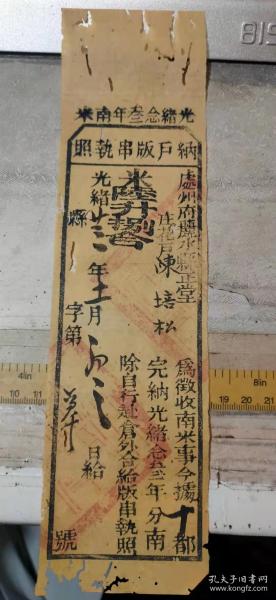 光緒念叁年南米
納戶版串執照
處州府麗水縣正堂為徵收南米事今據十都
庄花戶陳培松完納光緒念叁年分南
米陸升捌合除自行赴倉外合給版串執照
光緒廿三年十一月日給
縣字第號
8in
4in
1/10
19 20 21
孔夫子旧书网